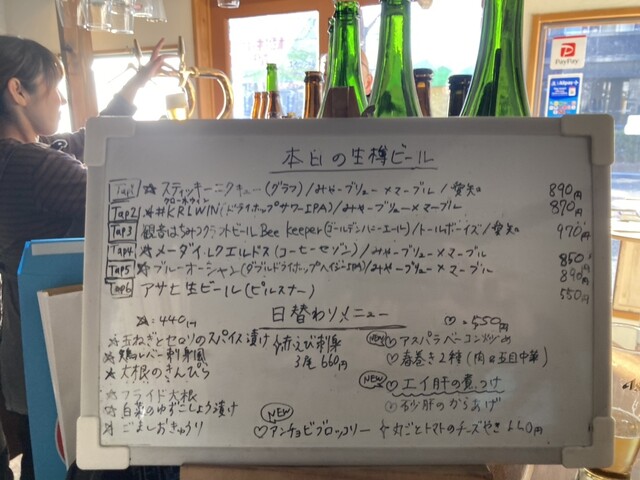 PayPay
本日の生樽ビール
Tap1 ☆スティッキーニクキュー(グラフ)/みやーブリュー×マーブル/愛知 890円
クローホウィン
Tap2 ☆#KRLWIN(ドライホップサワーIPA)/みやーブリュー×マーブル 870円
Tap3 観音はちみつクラフトビール Bee Keeper(ゴールデンハニーエール)/トールボーイズ/愛知 970円
Tap4 ☆メーダイレクエルドス(コーヒーセゾン)/みやーブリュー×マーブル 850円
Tap5 ☆ブルーオーシャン(ダブルドライホップヘイジーIPA)/みやーブリュー×マーブル 890円
Tap6 アサヒ生ビール(ピルスナー) 550円
日替わりメニュー
☆=440円 ♡=550円
☆玉ねぎとセロリのスパイス漬け
☆鶏レバー刺身風
☆大根のきんぴら
☆フライド大根
☆白菜のゆずこしょう漬け
☆ごましおきゅうり
赤えび刺身
3尾 660円
NEW ♡アンチョビブロッコリー
NEW ♡アスパラベーコン炒め
♡春巻き2種(肉&五目中華)
NEW ♡エイ肝の煮つけ
♡砂肝のからあげ
丸ごとトマトのチーズやき 660円